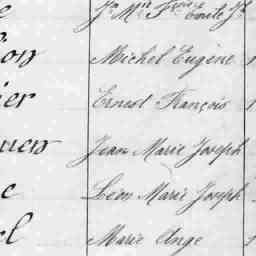 Jn Mie Frois Emile Jh
Michel Eugène
Ernest François
Jean Marie Joseph
Léon Marie Joseph
Marie Ange